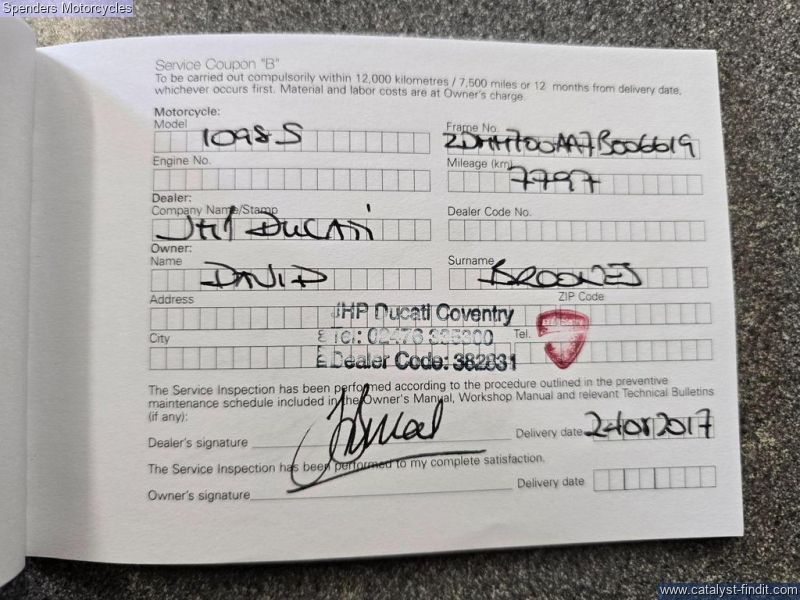 Spenders Motorcycles
Service Coupon "B"
To be carried out compulsorily within 12,000 kilometres / 7,500 miles or 12 months from delivery date,
whichever occurs first. Material and labor costs are at Owner's charge.
Motorcycle:
Model 1098S
Frame No. ZDMH700AA7B006619
Engine No.
Mileage (km) 7797
Dealer:
Company Name/Stamp JHP DUCATI
Dealer Code No.
Owner:
Name DAVID
Surname
Address
ZIP Code
JHP Ducati Coventry
City
Tel: 02476
Tel.
Dealer Code: 382831
The Service Inspection has been performed according to the procedure outlined in the preventive
maintenance schedule included in the Owner's Manual, Workshop Manual and relevant Technical Bulletins
(if any):
Dealer's signature
Delivery date 24082017
The Service Inspection has been performed to my complete satisfaction.
Owner's signature
Delivery date
www.catalyst-findit.com